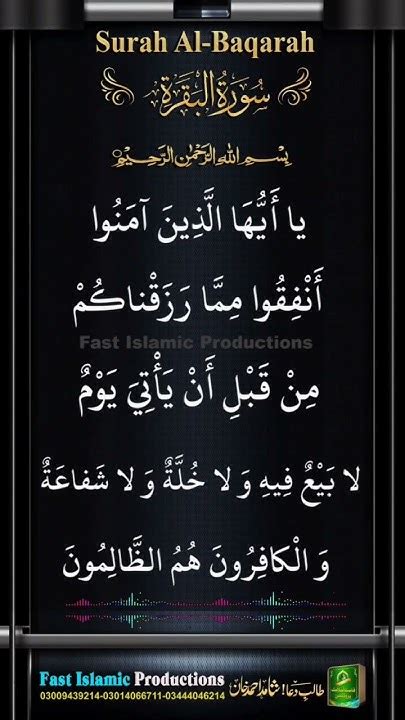 Surah Al-Baqarah
سُورَةُ الْبَقَرَةِ
بِسْمِ اللهِ الرَّحْمٰنِ الرَّحِيْمِ
يا أَيُّهَا الَّذِينَ آمَنُوا
أَنْفِقُوا مِمَّا رَزَقْناكُمْ
Fast Islamic Productions
مِنْ قَبْلِ أَنْ يَأْتِيَ يَوْمٌ
لا بَيْعٌ فِيهِ وَ لا خُلَّةٌ وَ لا شَفاعَةٌ
وَ الْكافِرُونَ هُمُ الظَّالِمُونَ
Fast Islamic Productions
03009439214-03014066711-03444046214
طالبِ دعا! شاہد احمد خان